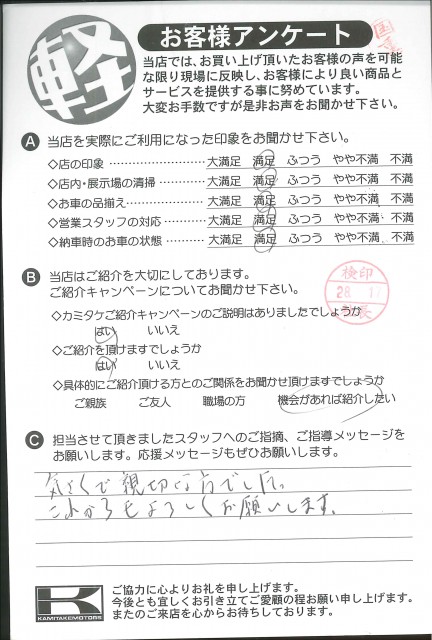 軽
お客様アンケート
当店では、お買い上げ頂いたお客様の声を可能
な限り現場に反映し、お客様により良い商品と
サービスを提供する事に努めています。
大変お手数ですが是非お声をお聞かせ下さい。
A 当店を実際にご利用になった印象をお聞かせ下さい。
◇店の印象 ……………………… 大満足 満足 ふつう やや不満 不満
◇店内・展示場の清掃 ………… 大満足 満足 ふつう やや不満 不満
◇お車の品揃え ………………… 大満足 満足 ふつう やや不満 不満
◇営業スタッフの対応 ………… 大満足 満足 ふつう やや不満 不満
◇納車時のお車の状態 ………… 大満足 満足 ふつう やや不満 不満
B 当店はご紹介を大切にしております。
ご紹介キャンペーンについてお聞かせ下さい。
検印
28.
◇カミタケご紹介キャンペーンのご説明はありましたでしょうか
はい いいえ
◇ご紹介を頂けますでしょうか
はい いいえ
◇具体的にご紹介頂ける方とのご関係をお聞かせ頂けますでしょうか
ご親族 ご友人 職場の方 機会があれば紹介したい
C 担当させて頂きましたスタッフへのご指摘、ご指導メッセージを
お願いします。応援メッセージもぜひお願いします。
気さくで親切な方でした。
これからもよろしくお願いします。
K
KAMITAKEMOTORS
ご協力に心よりお礼を申し上げます。
今後とも宜しくお引き立てご愛顧の程お願い申し上げます。
またのご来店を心からお待ちしております。